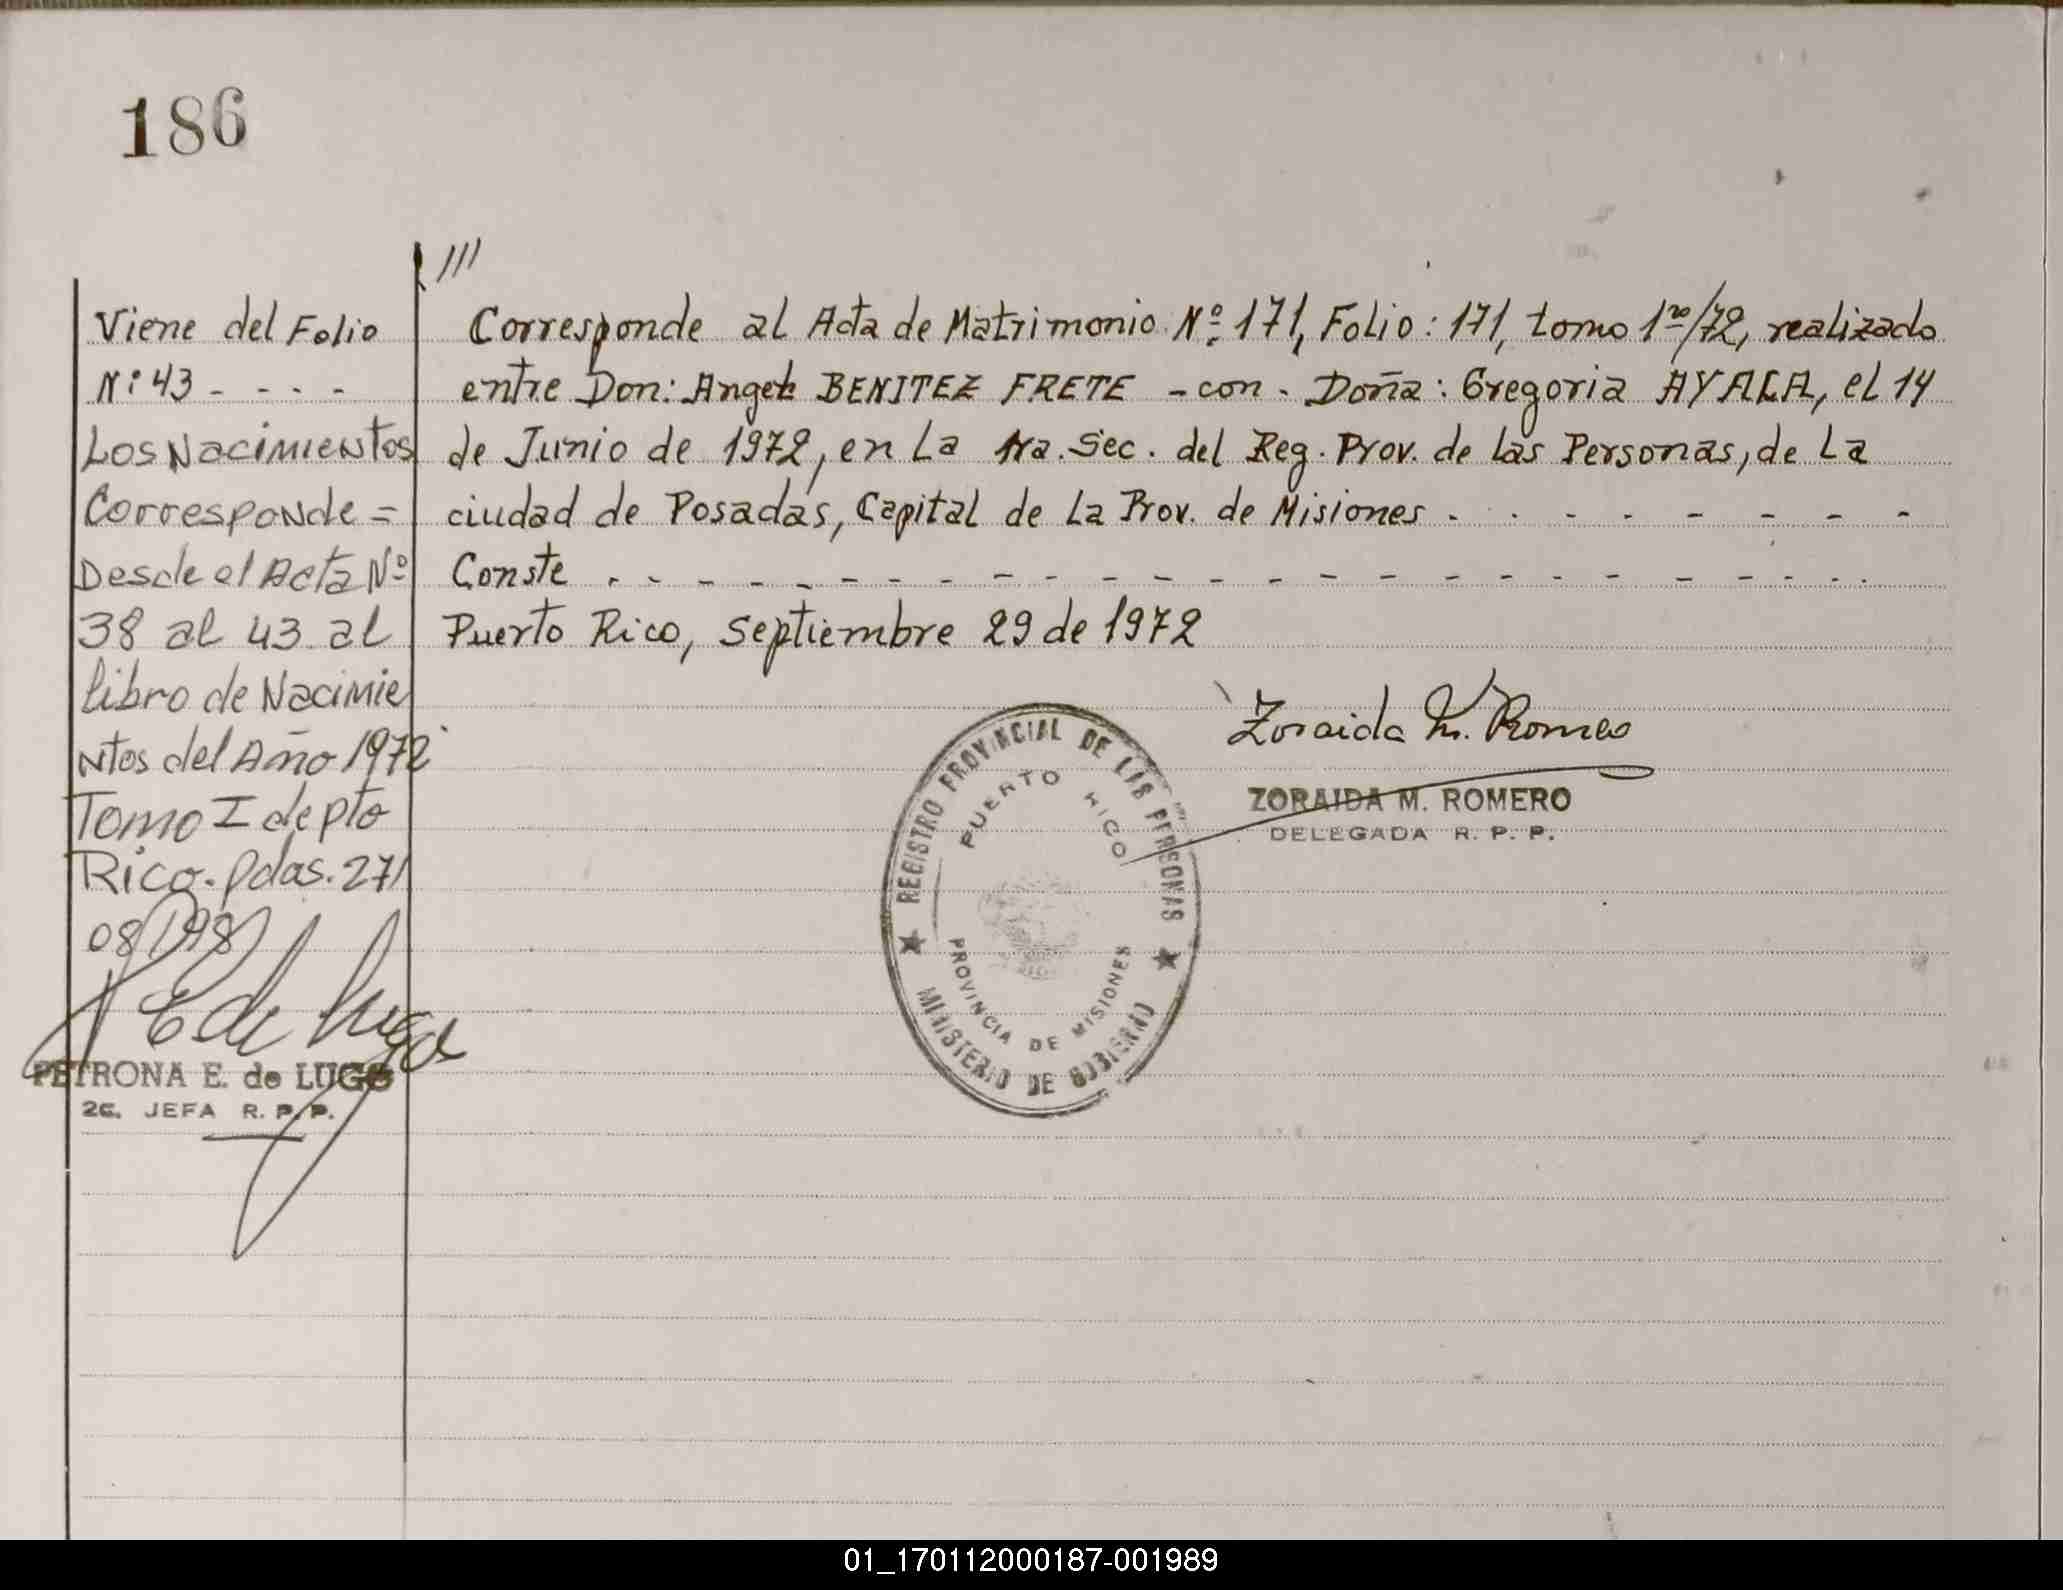 186
Viene del Folio
Nº 43 - - - -
Los Nacimientos
Corresponde =
Desde el Acta Nº
38 al 43 al
libro de Nacimie
ntos del Año 1972
Tomo I de pto
Rico. Pdas. 271
08/1978
PETRONA E. de LUGO
2C. JEFA R. P. P.
///
Corresponde al Acta de Matrimonio Nº 171, Folio: 171, tomo 1ro/72, realizado
entre Don: Angel BENITEZ FRETE - con - Doña: Gregoria AYALA, el 14
de Junio de 1972, en La 1ra. Sec. del Reg. Prov. de las Personas, de La
ciudad de Posadas, Capital de La Prov. de Misiones - - - - - - - -
Conste - - - - - - - - - - - - - - - - - - - - - -
Puerto Rico, Septiembre 29 de 1972
Zoraida M. Romero
ZORAIDA M. ROMERO
DELEGADA R. P. P.
REGISTRO PROVINCIAL DE LAS PERSONAS
PUERTO RICO
PROVINCIA DE MISIONES
MINISTERIO DE GOBIERNO
01_170112000187-001989